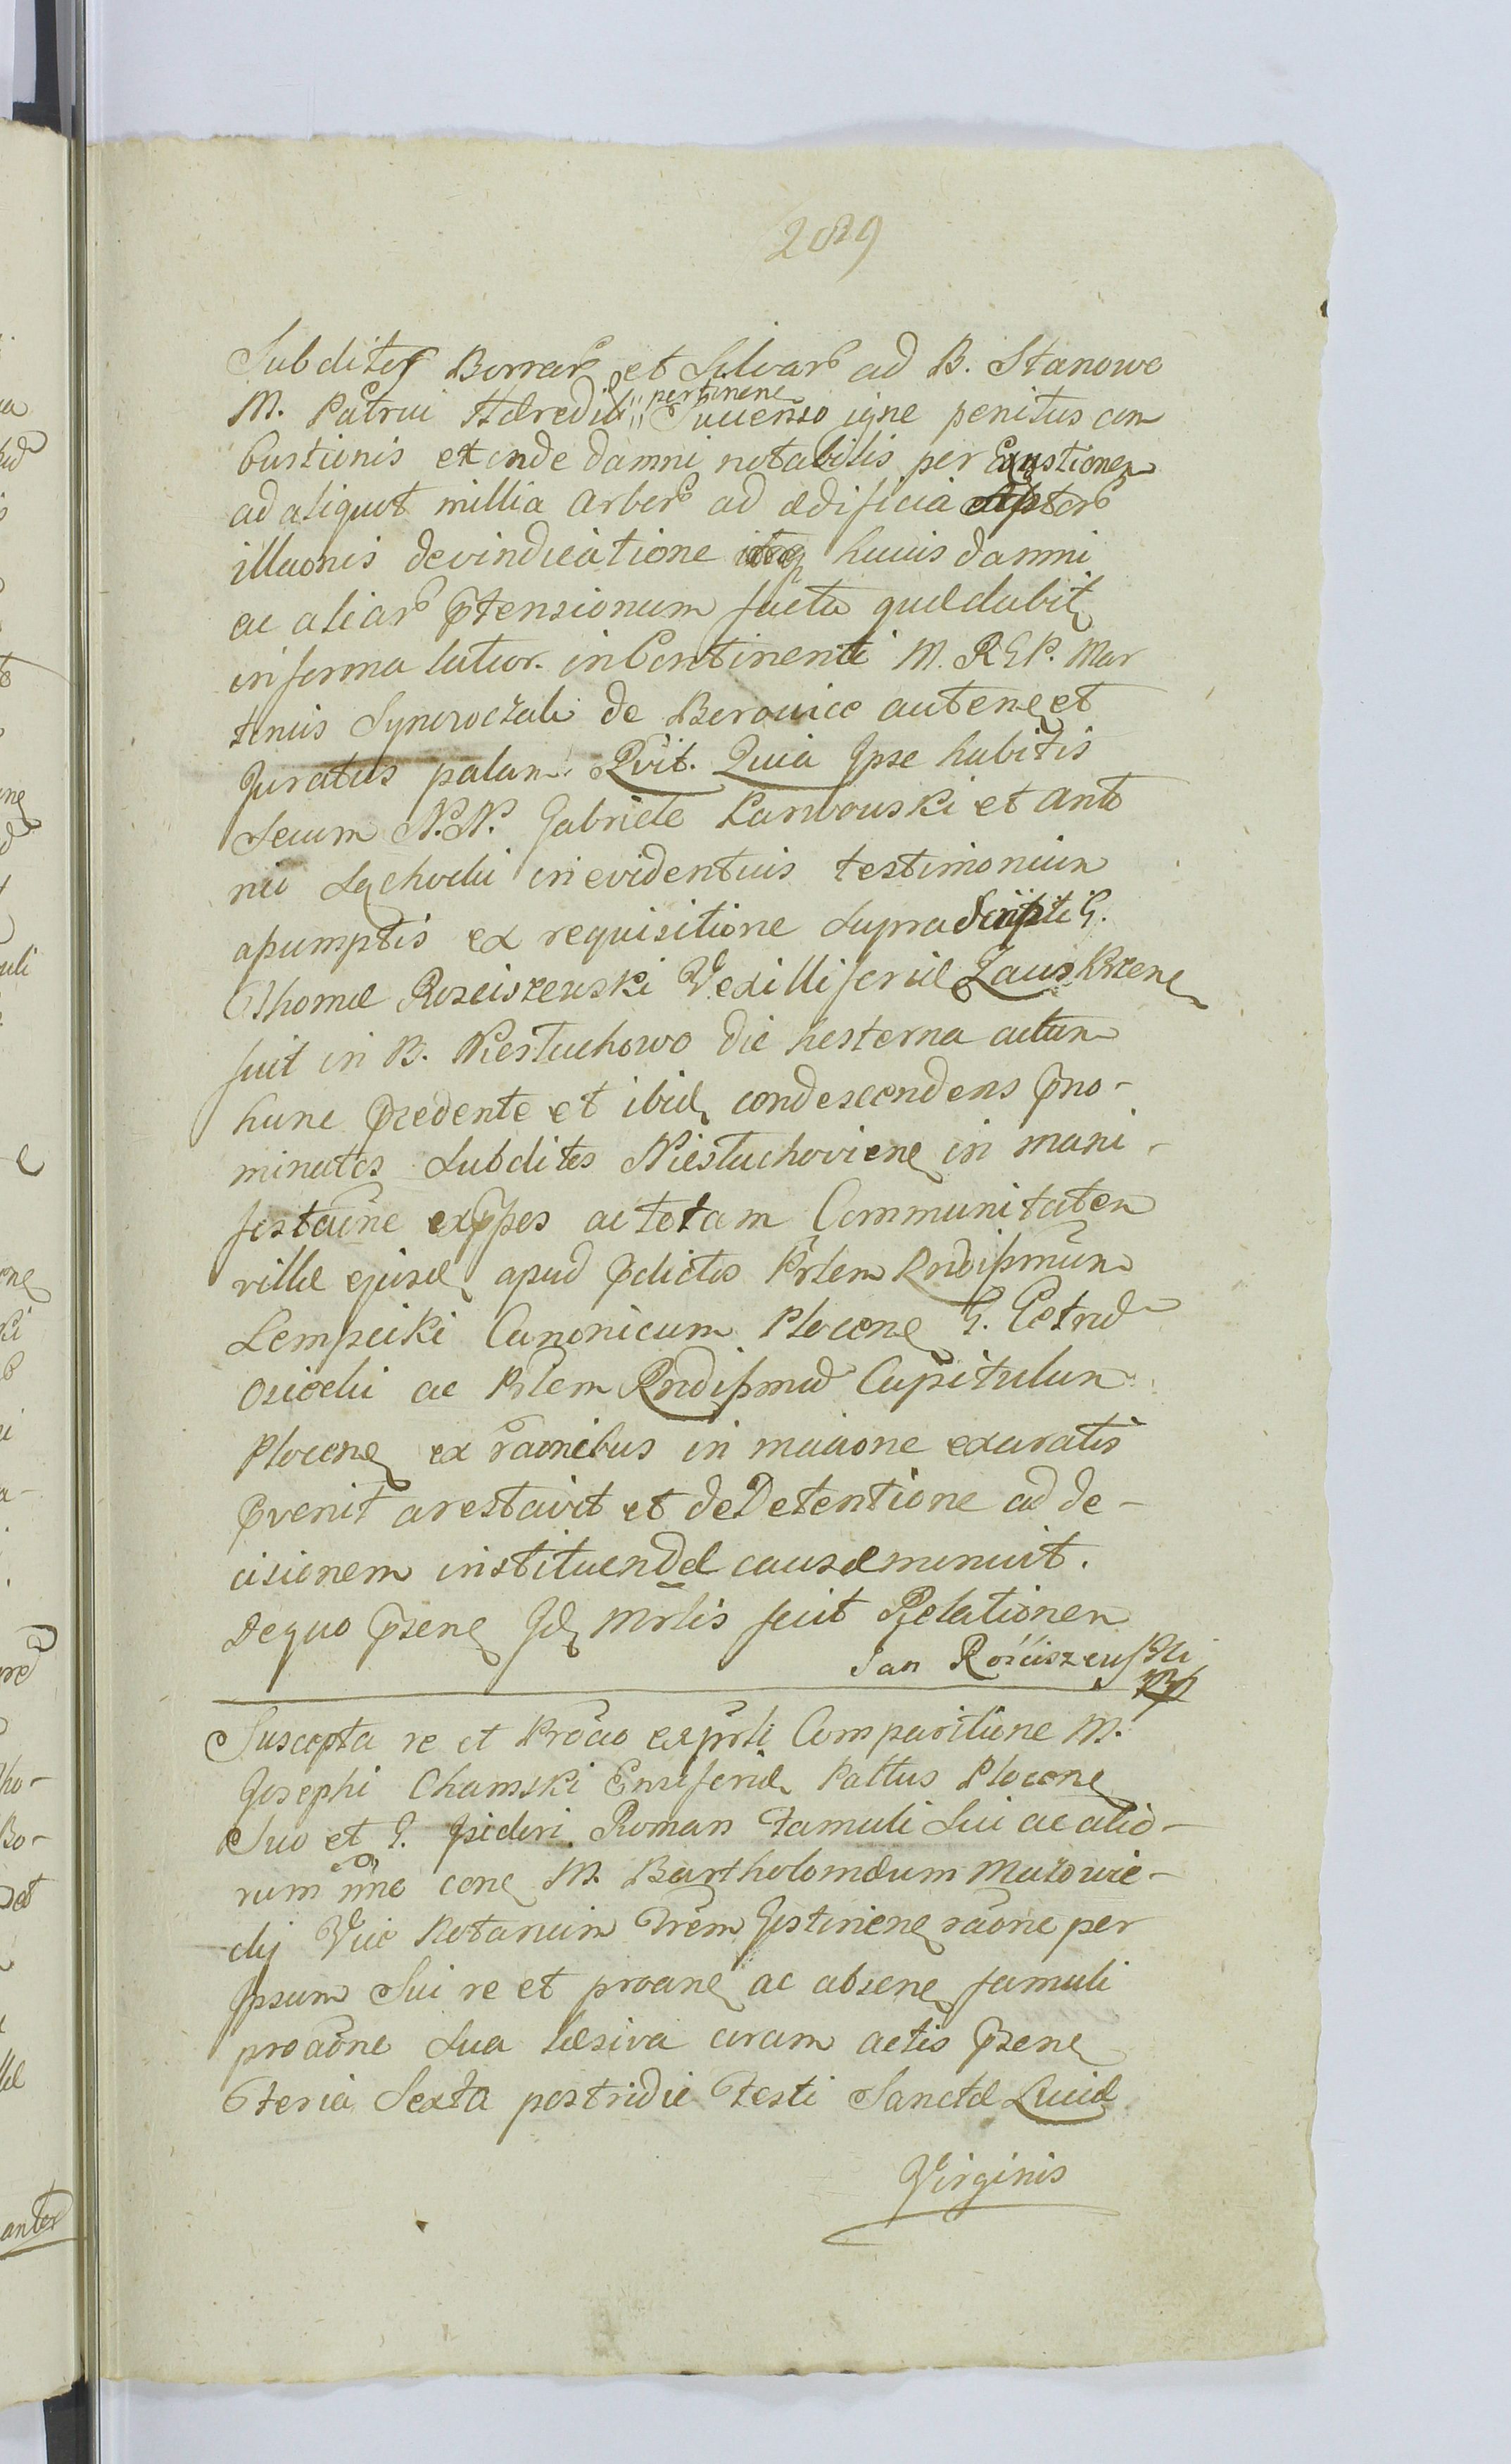 2089
Subditos Borrarũ et Silvarũ ad B. Stanowo
M. Patrui Hæredit. pertinene Succenso igne penitus com
bustionis et inde damni notabilis per Exustionem
ad aliquot millia arborũ ad ædificia aptarũ
illaonis de vindicatione itaq huius damni
ac aliarũ ptensionum facta quædubit
in forma latior. in Continenti M. R G P. Mar
tinus Synoroczali de Borowice autene et
Juratus palam Rvit. Quia Ipse habitis
secum N.N. Gabriele Karwowski et Anto
nii Lachocki in evidentius testimonium
assumptis ex requisitione supra Scripti G.
Thomæ Rosciszewski Vexilliferidæ Zaus Krzene
fuit in B. Niestuchowo die hesterna actum
hunc pcedente et ibid condescendens pno-
minatos Subditos Niestuchoviene in mani-
festaōne exppes ac totam Communitatem
villæ ejusd apud pdictos Prlem Rndissmum
Lempicki Canonicum Plocene G. Petrum
Osiecki ac Prlem Rndissmum Capitulum
Plocene ex raōnibus in maaone exaratis
pvenit arestavit et de Detentione ad de-
cisionem instituendæ causæ monuit.
De quo psene Id Mrlis fecit Relationem
Jan Rościszewski
mp
Suscepta re et Procio exprsti Comparitione M.
Josephi Chamski Ensiferidæ Pattus Plocene
Suo et G. Isidori Roman famuli sui ac alio-
rum oo nīne cone M. Bartholomæum Mutowie-
cki Vice Notarium Trem Gostiniene raōne per
Ipsum Sui re et proane ac absene famuli
proaōne sua læsiva coram actis psene
Feria Sexta postridie Festi Sanctæ Luciæ
Virginis